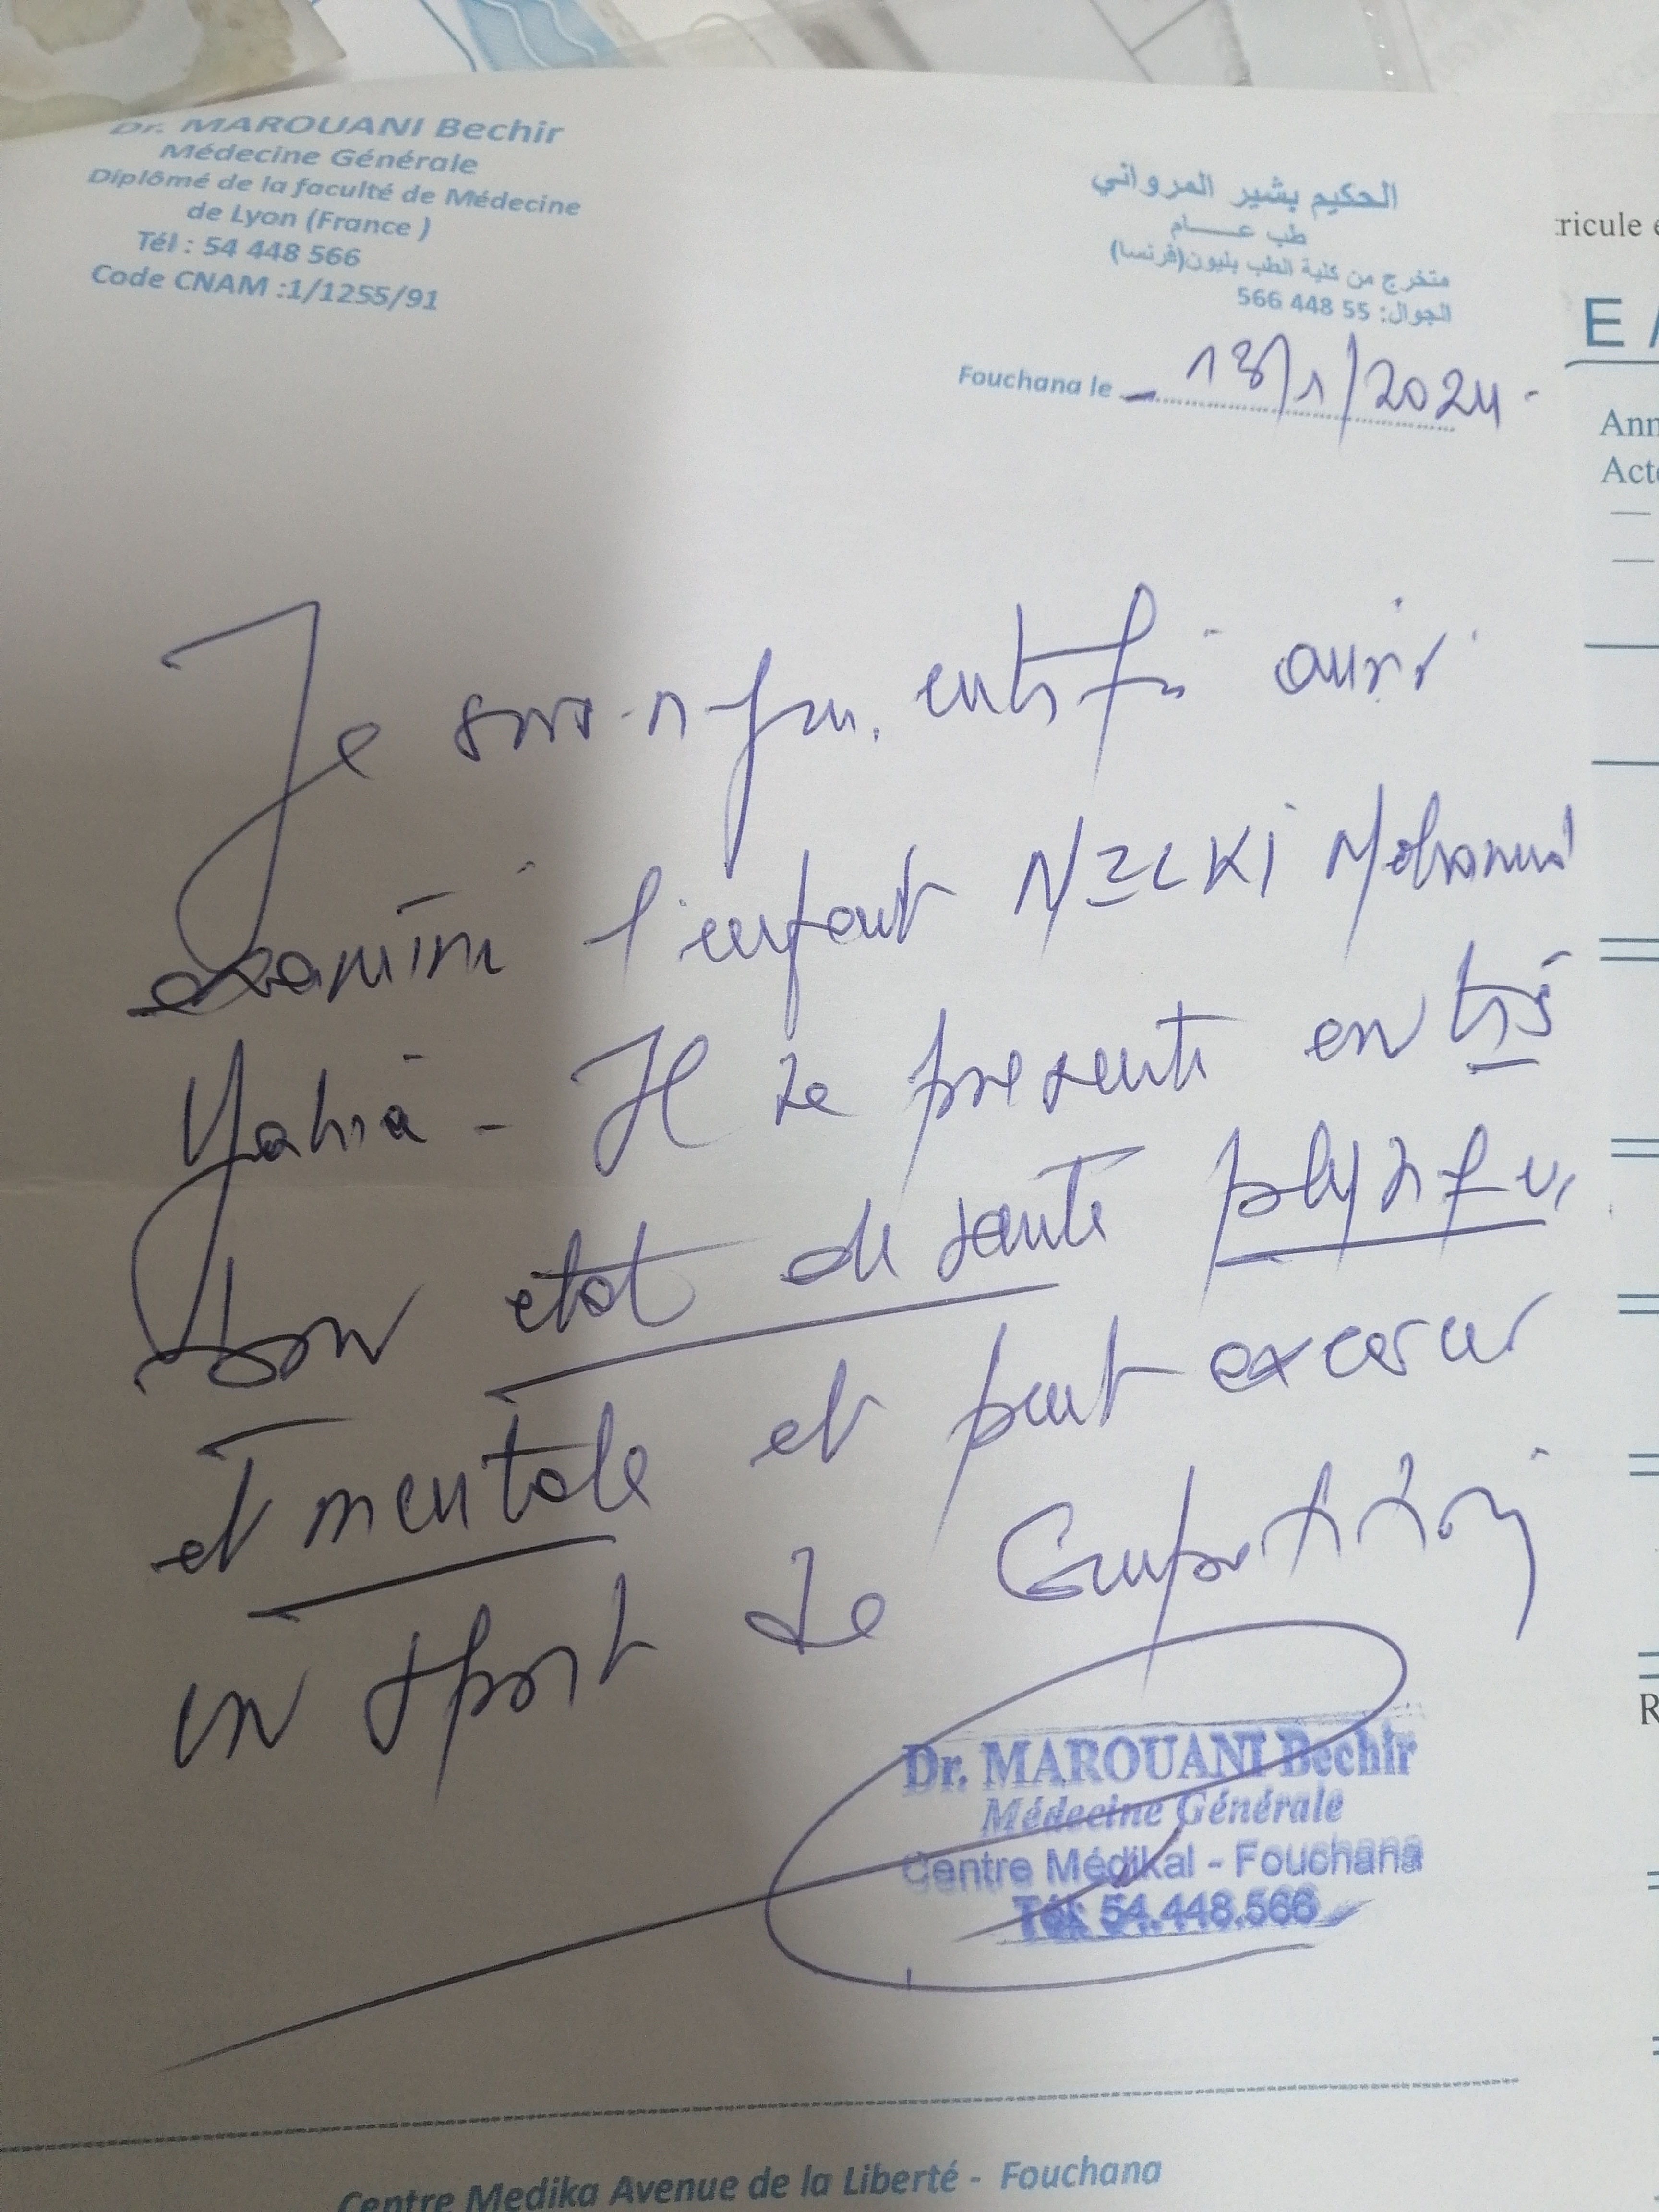 Dr. MAROUANI Bechir
Médecine Générale
Diplômé de la faculté de Médecine
de Lyon (France )
Tél : 54 448 566
Code CNAM :1/1255/91
الحكيم بشير المرواني
طب عــــام
متخرج من كلية الطب بليون(فرنسا)
الجوال: 55 448 566
Fouchana le 13/1/2024
Je certifie avoir
examiné l'enfant Mohamed
Yahia - Il se présente en très
bon état de santé physique
et mentale et peut excercer
un sport de Compétition
Dr. MAROUANI Bechir
Médecine Générale
Centre Médikal - Fouchana
Tél: 54.448.566
Centre Medika Avenue de la Liberté - Fouchana
ricule
E
Ann
Act
R